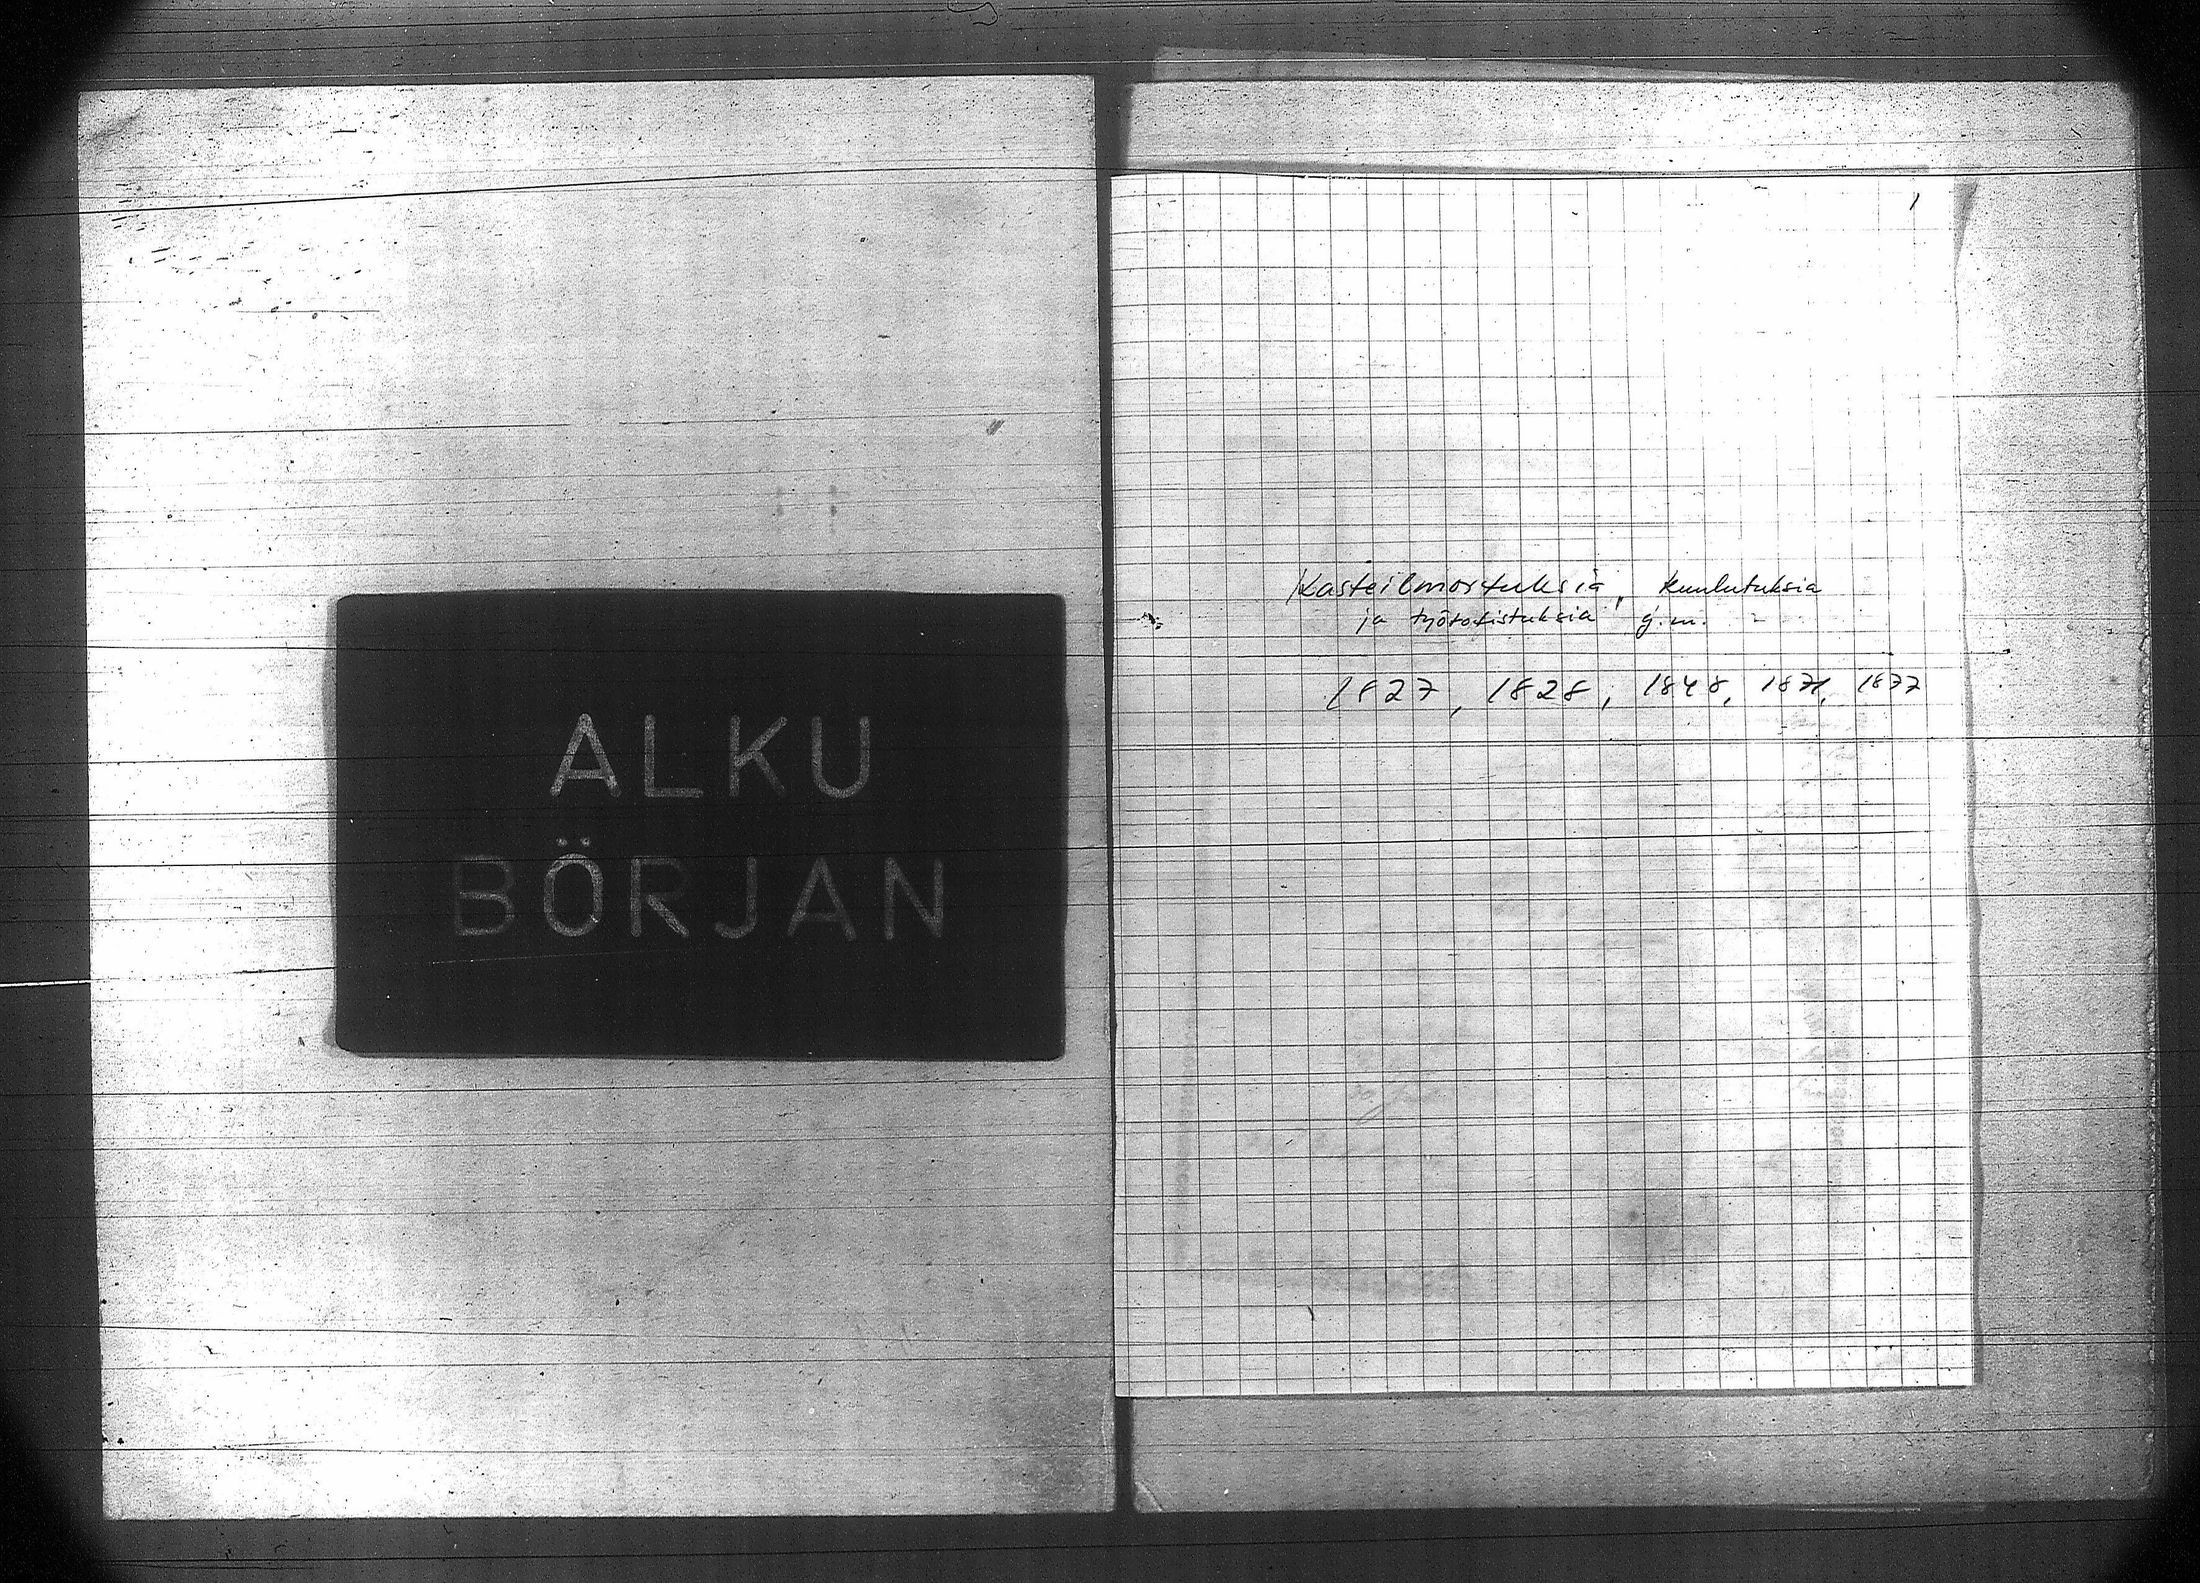 ALKU
BÖRJAN
1
Kasteilmoituksia, kuulutuksia
ja työtodistuksia y.m.
1827, 1828, 1848, 1871, 1877